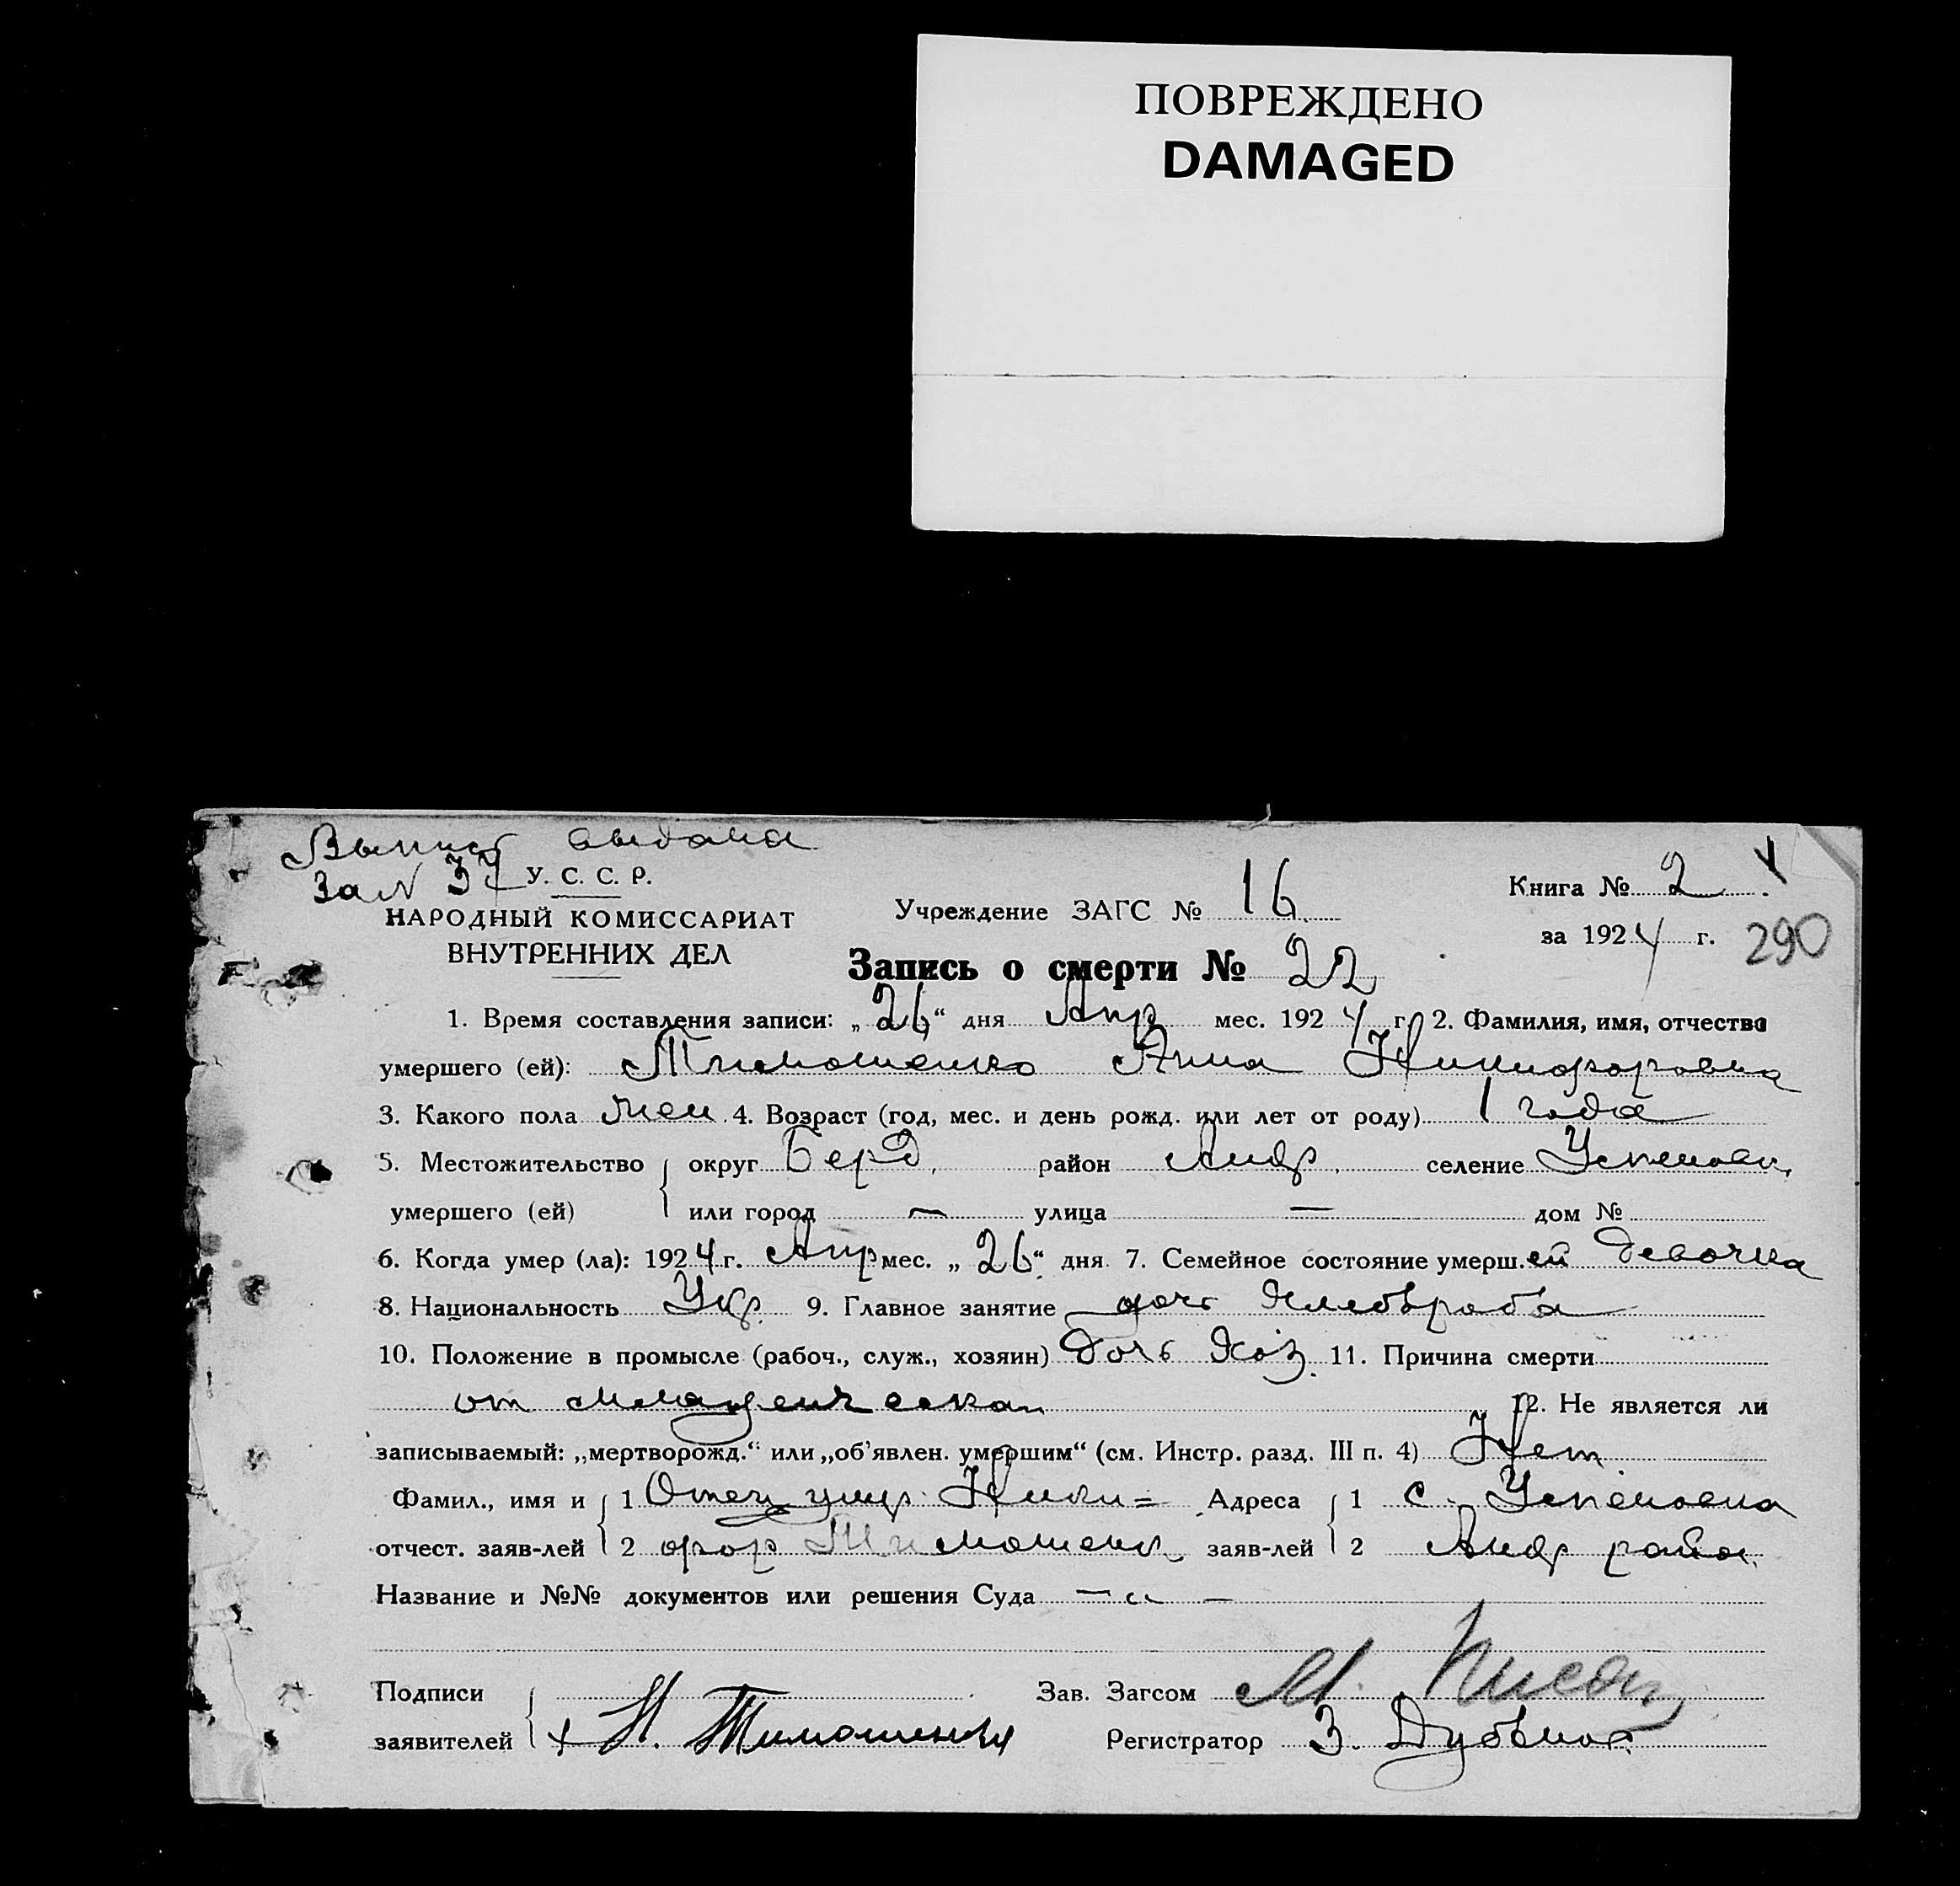 ПОВРЕЖДЕНО
DAMAGED
Выпис выдана
За N 37 У. С. С. Р.
НАРОДНЫЙ КОМИССАРИАТ
ВНУТРЕННИХ ДЕЛ
Учреждение ЗАГС № 16
Книга № 2
за 1924 г. 290
Запись о смерти № 22
1. Время составления записи: „26“ дня Апр мес. 1924 г. 2. Фамилия, имя, отчество
умершего (ей): Тимошенко Анна Никифоровна
3. Какого пола жен 4. Возраст (год, мес. и день рожд. или лет от роду) 1 года
5. Местожительство округ Берд. район Андр. селение Успеновк
умершего (ей) или город — улица — дом №
6. Когда умер (ла): 1924 г. Апр мес. „26“ дня. 7. Семейное состояние умерш.ей девочка
8. Национальность Укр. 9. Главное занятие дочь Хлебораба
10. Положение в промысле (рабоч., служ., хозяин) дочь Хоз. 11. Причина смерти
от младенческая 12. Не является ли
записываемый: „мертворожд.“ или „об'явлен. умершим“ (см. Инстр. разд. III п. 4) Нет
Фамил., имя и 1 Отец умер. Ники= Адреса 1 с. Успеновка
отчест. заяв-лей 2 фор Тимошенк заяв-лей 2 Андр район
Название и №№ документов или решения Суда — „ —
Подписи Зав. Загсом М.
заявителей + Н. Тимошенко Регистратор З.